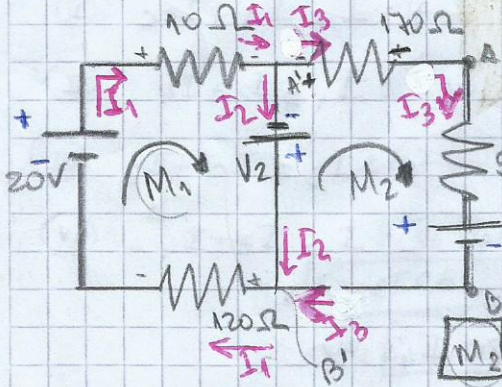 10Ω I₁ I₃ 170Ω
+ - - + A
I₁ I₂ A'+ I₃
+ - + +
20V M₁ V2 M₂ -
-
- + I₂
120Ω I₃
I₁ B' M₃